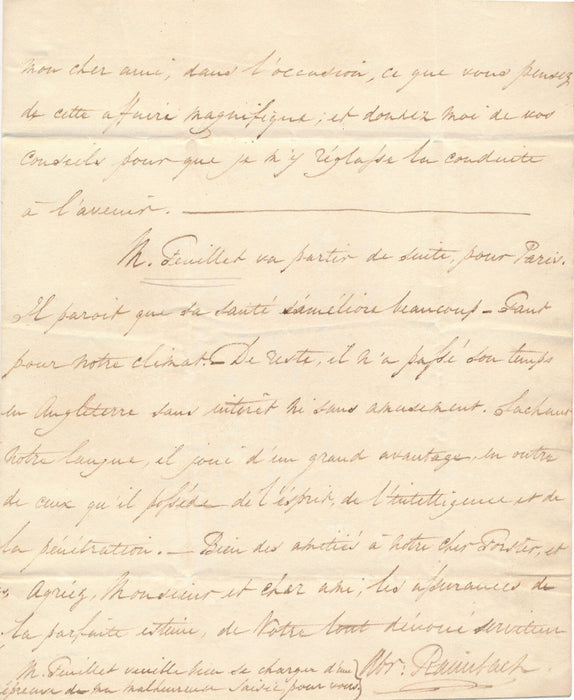 mon cher ami, dans l'occasion, ce que vous pensez
de cette affaire magnifique; et donnez moi de vos
conseils pour que je n'y réglasse la conduite
à l'avenir.
M. Feuillet va partir de suite, pour Paris.
Il paroit que sa santé s'améliore beaucoup - Tant
pour notre climat. - De reste, il n'a passé son temps
en Angleterre sans intérêt ni sans amusement. Sachant
notre langue, il joui d'un grand avantage, en outre
de ceux qu'il possède de l'ésprit, de l'intelligence et de
la pénétration. - Bien des amitiés à notre cher Forster, et
Agriéz, Monsieur et cher ami, les assurances de
la parfaite estime, de Votre tout dévoué serviteur
M. Feuillet veuille bien se charger d'une
épreuve de ma malheureuse Saisie pour vous
Abr. Raimbach